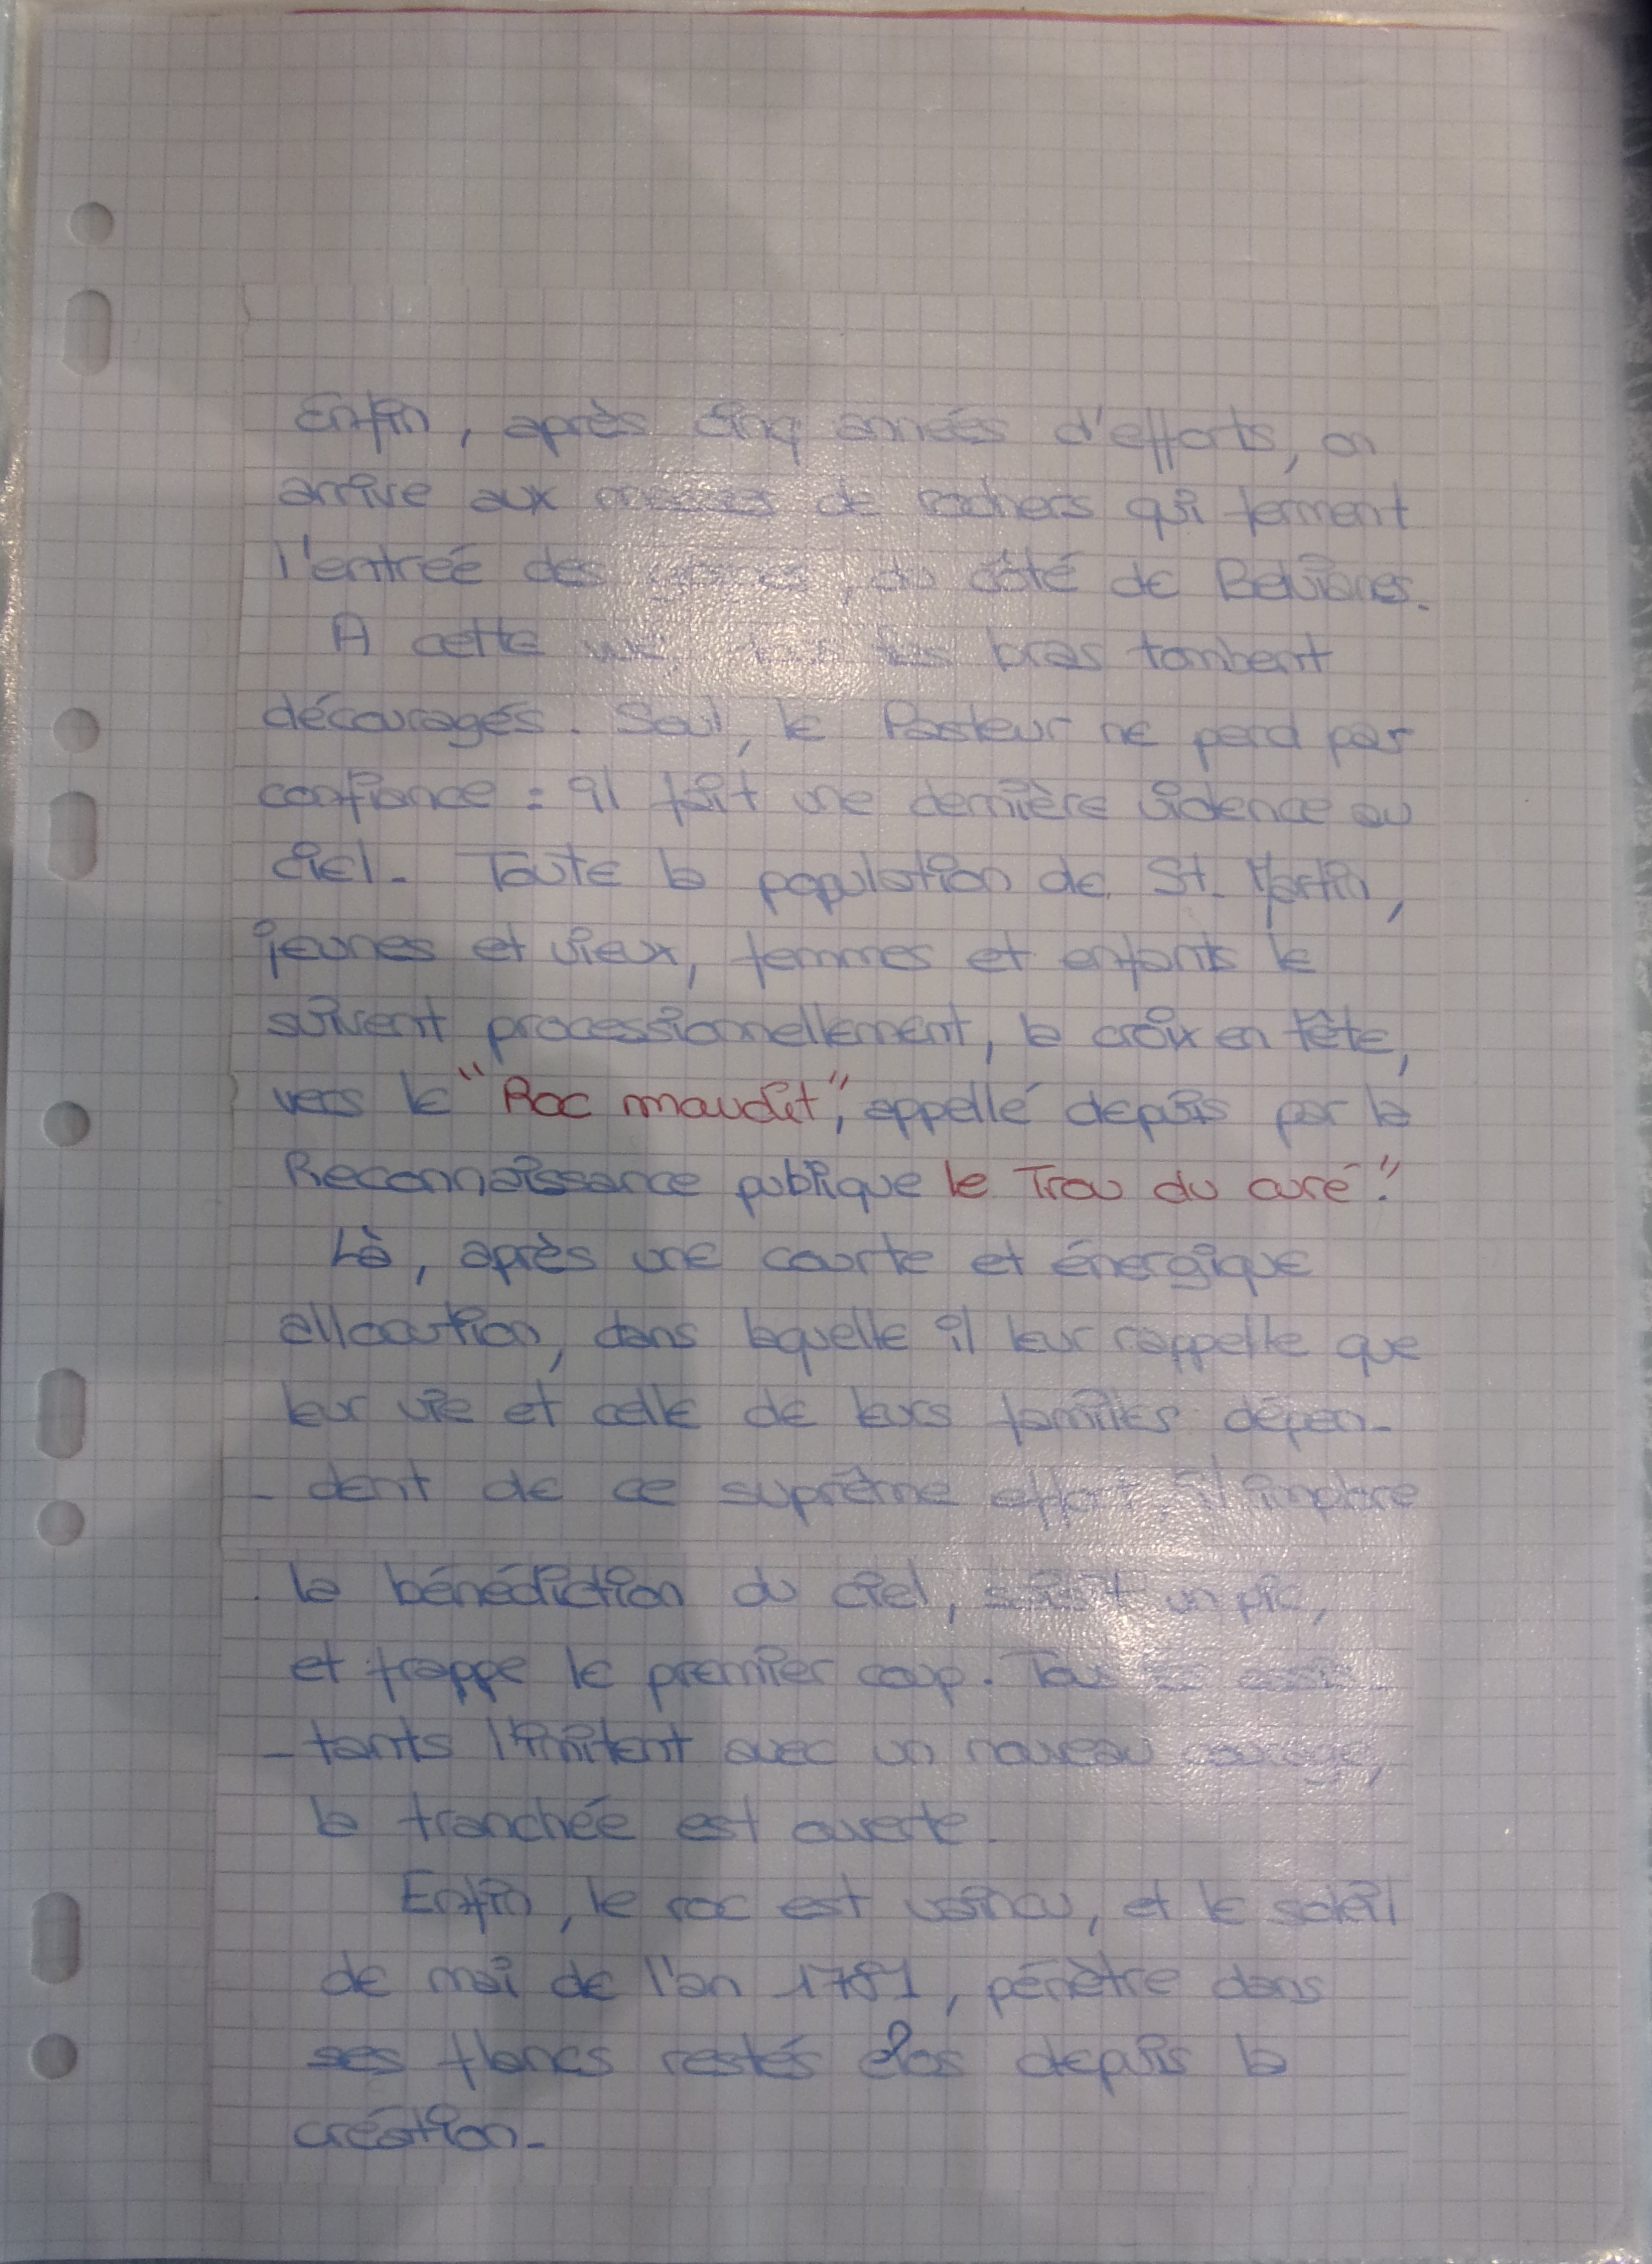 Enfin, après cinq années d'efforts, on
arrive aux masses de rochers qui ferment
l'entrée des gorges, du côté de Belvianes.
A cette vue, tous les bras tombent
découragés. Seul, le Pasteur ne perd pas
confiance : il fait une dernière violence au
ciel. Toute la population de St. Martin,
jeunes et vieux, femmes et enfants le
suivent processionnellement, la croix en tête,
vers le "Roc maudit", appellé depuis par la
Reconnaissance publique le Trou du curé."
Là, après une courte et énergique
allocution, dans laquelle il leur rappelle que
leur vie et celle de leurs familles dépen-
- dent de ce suprême effort, il implore
la bénédiction du ciel, saisit un pic,
et frappe le premier coup. Tous les assis-
- tants l'imitent avec un nouveau courage,
la tranchée est ouverte.
Enfin, le roc est vaincu, et le soleil
de mai de l'an 1781, pénètre dans
ses flancs restés clos depuis la
création.